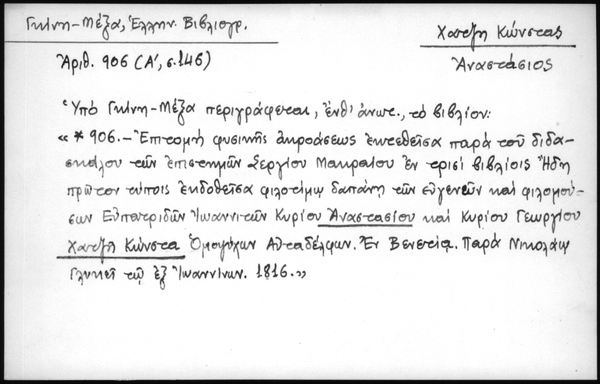 Γκίνη-Μέξα, Ἑλλην. Βιβλιογρ.
Χατζῆ Κώνστας
Ἀριθ. 906 (Α', σ. 146)
Ἀναστάσιος
Ὑπὸ Γκίνη-Μέξα περιγράφεται, ἔνθ' ἀνωτ., τὸ βιβλίον:
«*906.- Ἐπιτομὴ φυσικῆς ἀκροάσεως ἐκτεθεῖσα παρὰ τοῦ διδα-
σκάλου τῶν ἐπιστημῶν Σεργίου Μακραίου ἐν τρισὶ βιβλίοις Ἤδη
πρῶτον τύποις ἐκδοθεῖσα φιλοτίμῳ δαπάνῃ τῶν εὐγενῶν καὶ φιλομού-
σων Εὐπατριδῶν Ἰωαννιτῶν Κυρίου Ἀναστασίου καὶ Κυρίου Γεωργίου
Χατζῆ Κώνστα Ὁμογύλων Αὐταδέλφων. Ἐν Βενετίᾳ. Παρὰ Νικολάῳ
Γλυκεῖ τῷ ἐξ Ἰωαννίνων. 1816.»